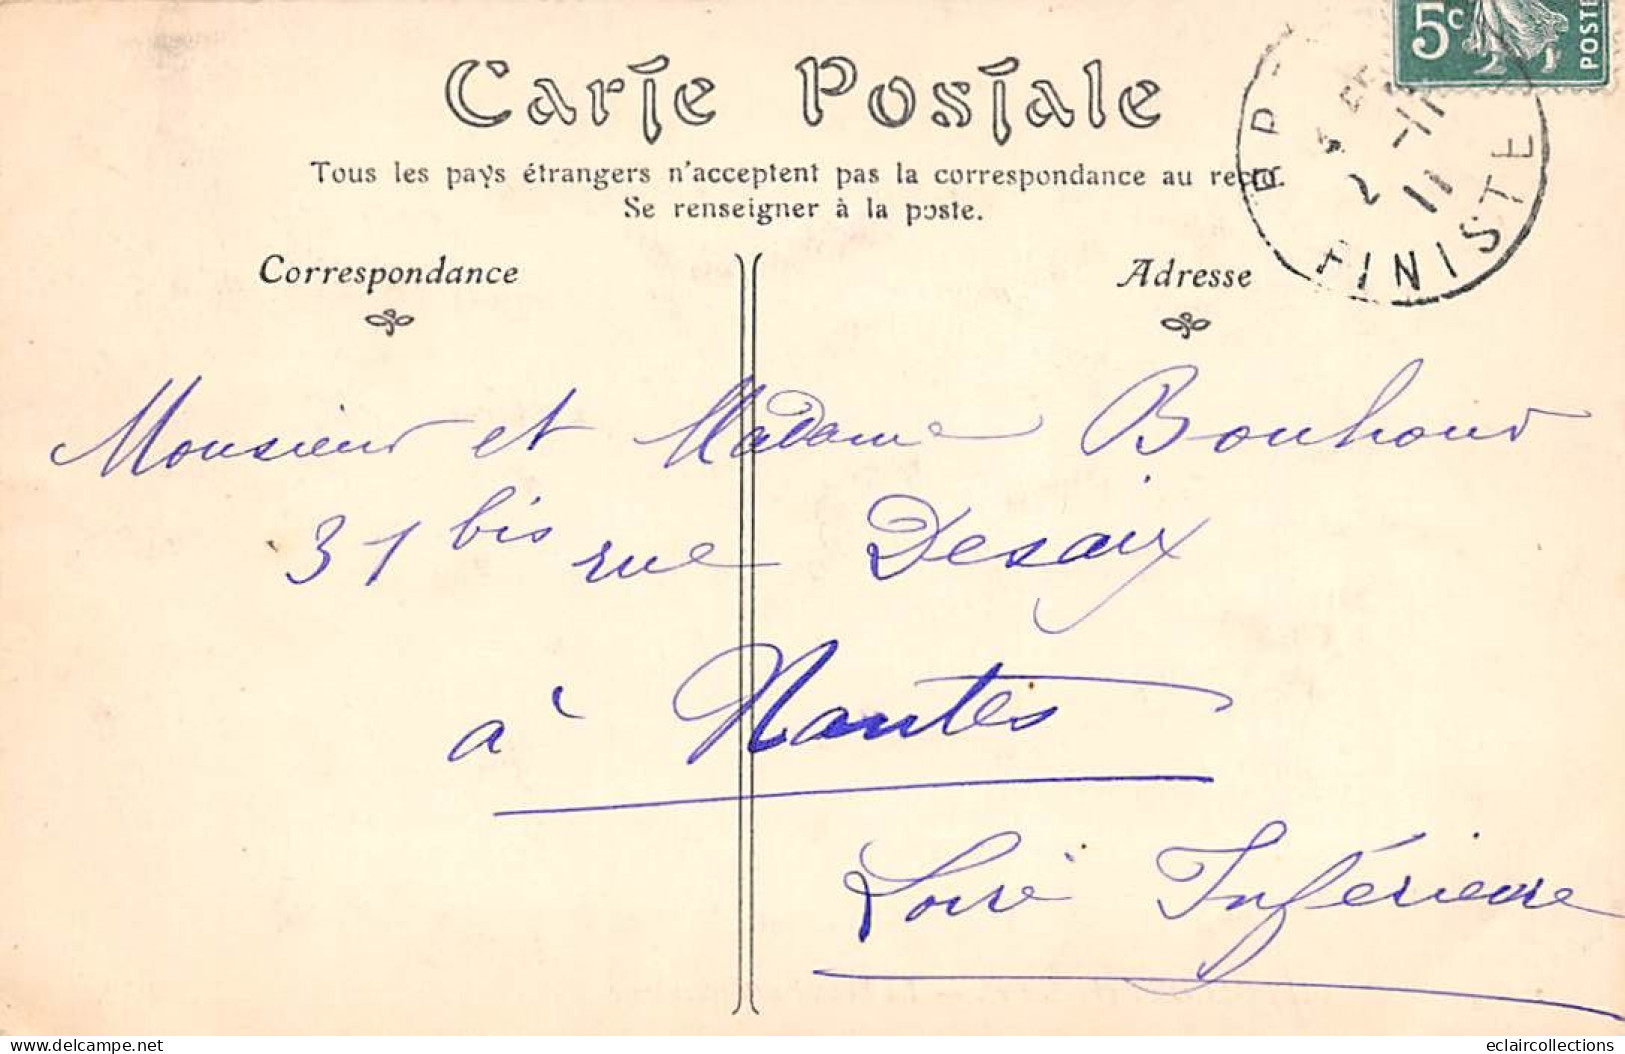 Carte Postale
5c
POSTE
Tous les pays étrangers n'acceptent pas la correspondance au recto.
Se renseigner à la poste.
2 -11
11
FINISTE
Correspondance
Adresse
Monsieur et Madame Bouhour
31 bis rue Desaix
à Nantes
Loire Inférieure
delcampe.net
eclaircollections